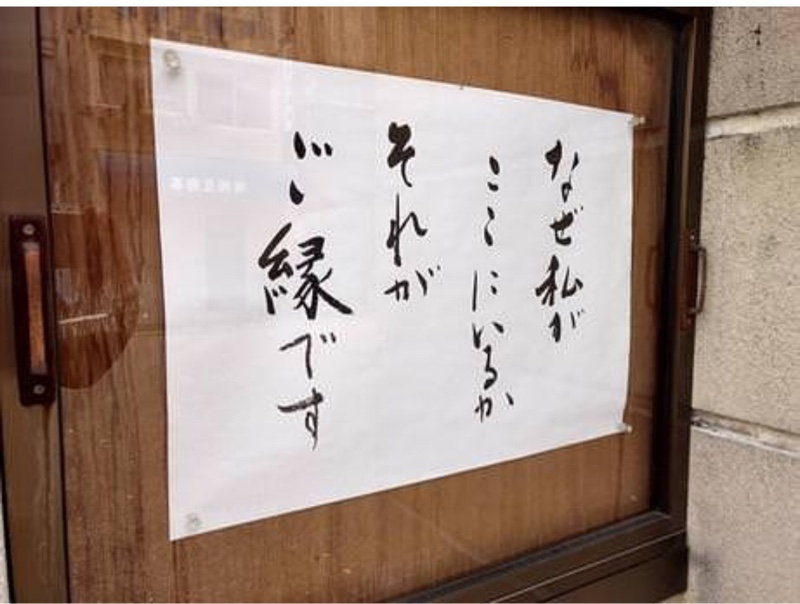 なぜ私が
ここにいるか
それが
ご縁です